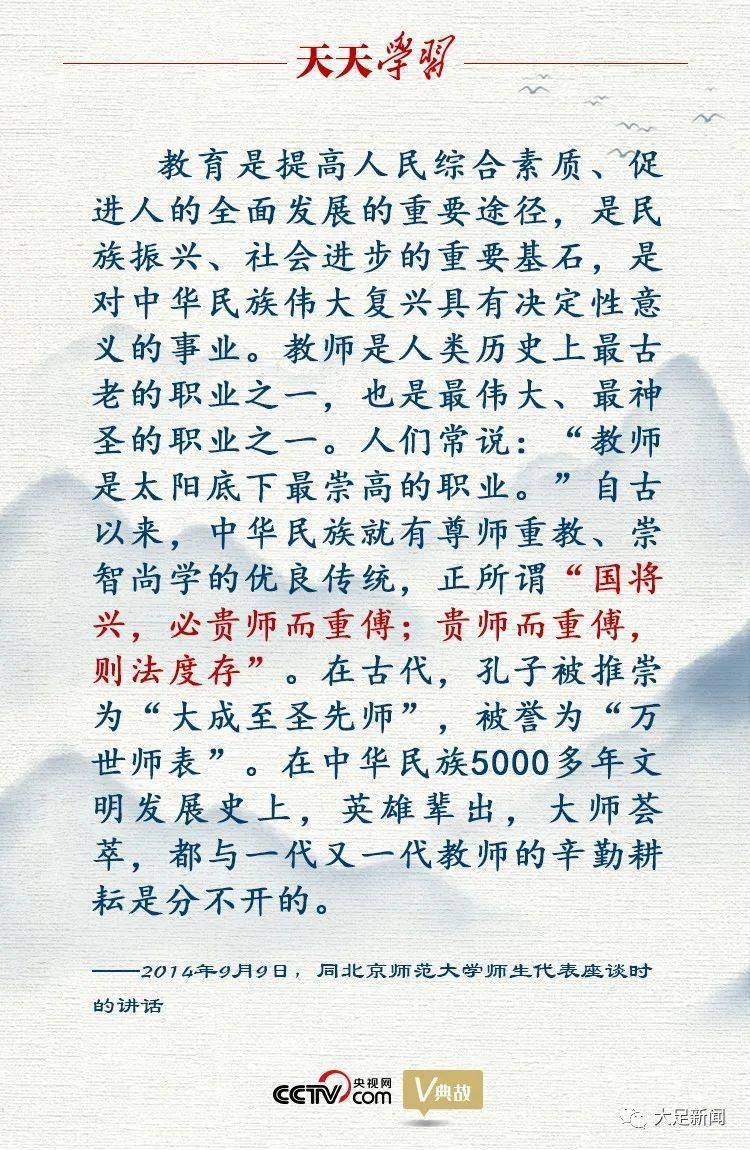 天天學習
教育是提高人民综合素质、促
进人的全面发展的重要途径，是民
族振兴、社会进步的重要基石，是
对中华民族伟大复兴具有决定性意
义的事业。教师是人类历史上最古
老的职业之一，也是最伟大、最神
圣的职业之一。人们常说：“教师
是太阳底下最崇高的职业。”自古
以来，中华民族就有尊师重教、崇
智尚学的优良传统，正所谓“国将
兴，必贵师而重傅；贵师而重傅，
则法度存”。在古代，孔子被推崇
为“大成至圣先师”，被誉为“万
世师表”。在中华民族5000多年文
明发展史上，英雄辈出，大师荟
萃，都与一代又一代教师的辛勤耕
耘是分不开的。
——2014年9月9日，同北京师范大学师生代表座谈时
的讲话
CCTV.com 央视网 V典故
大足新闻